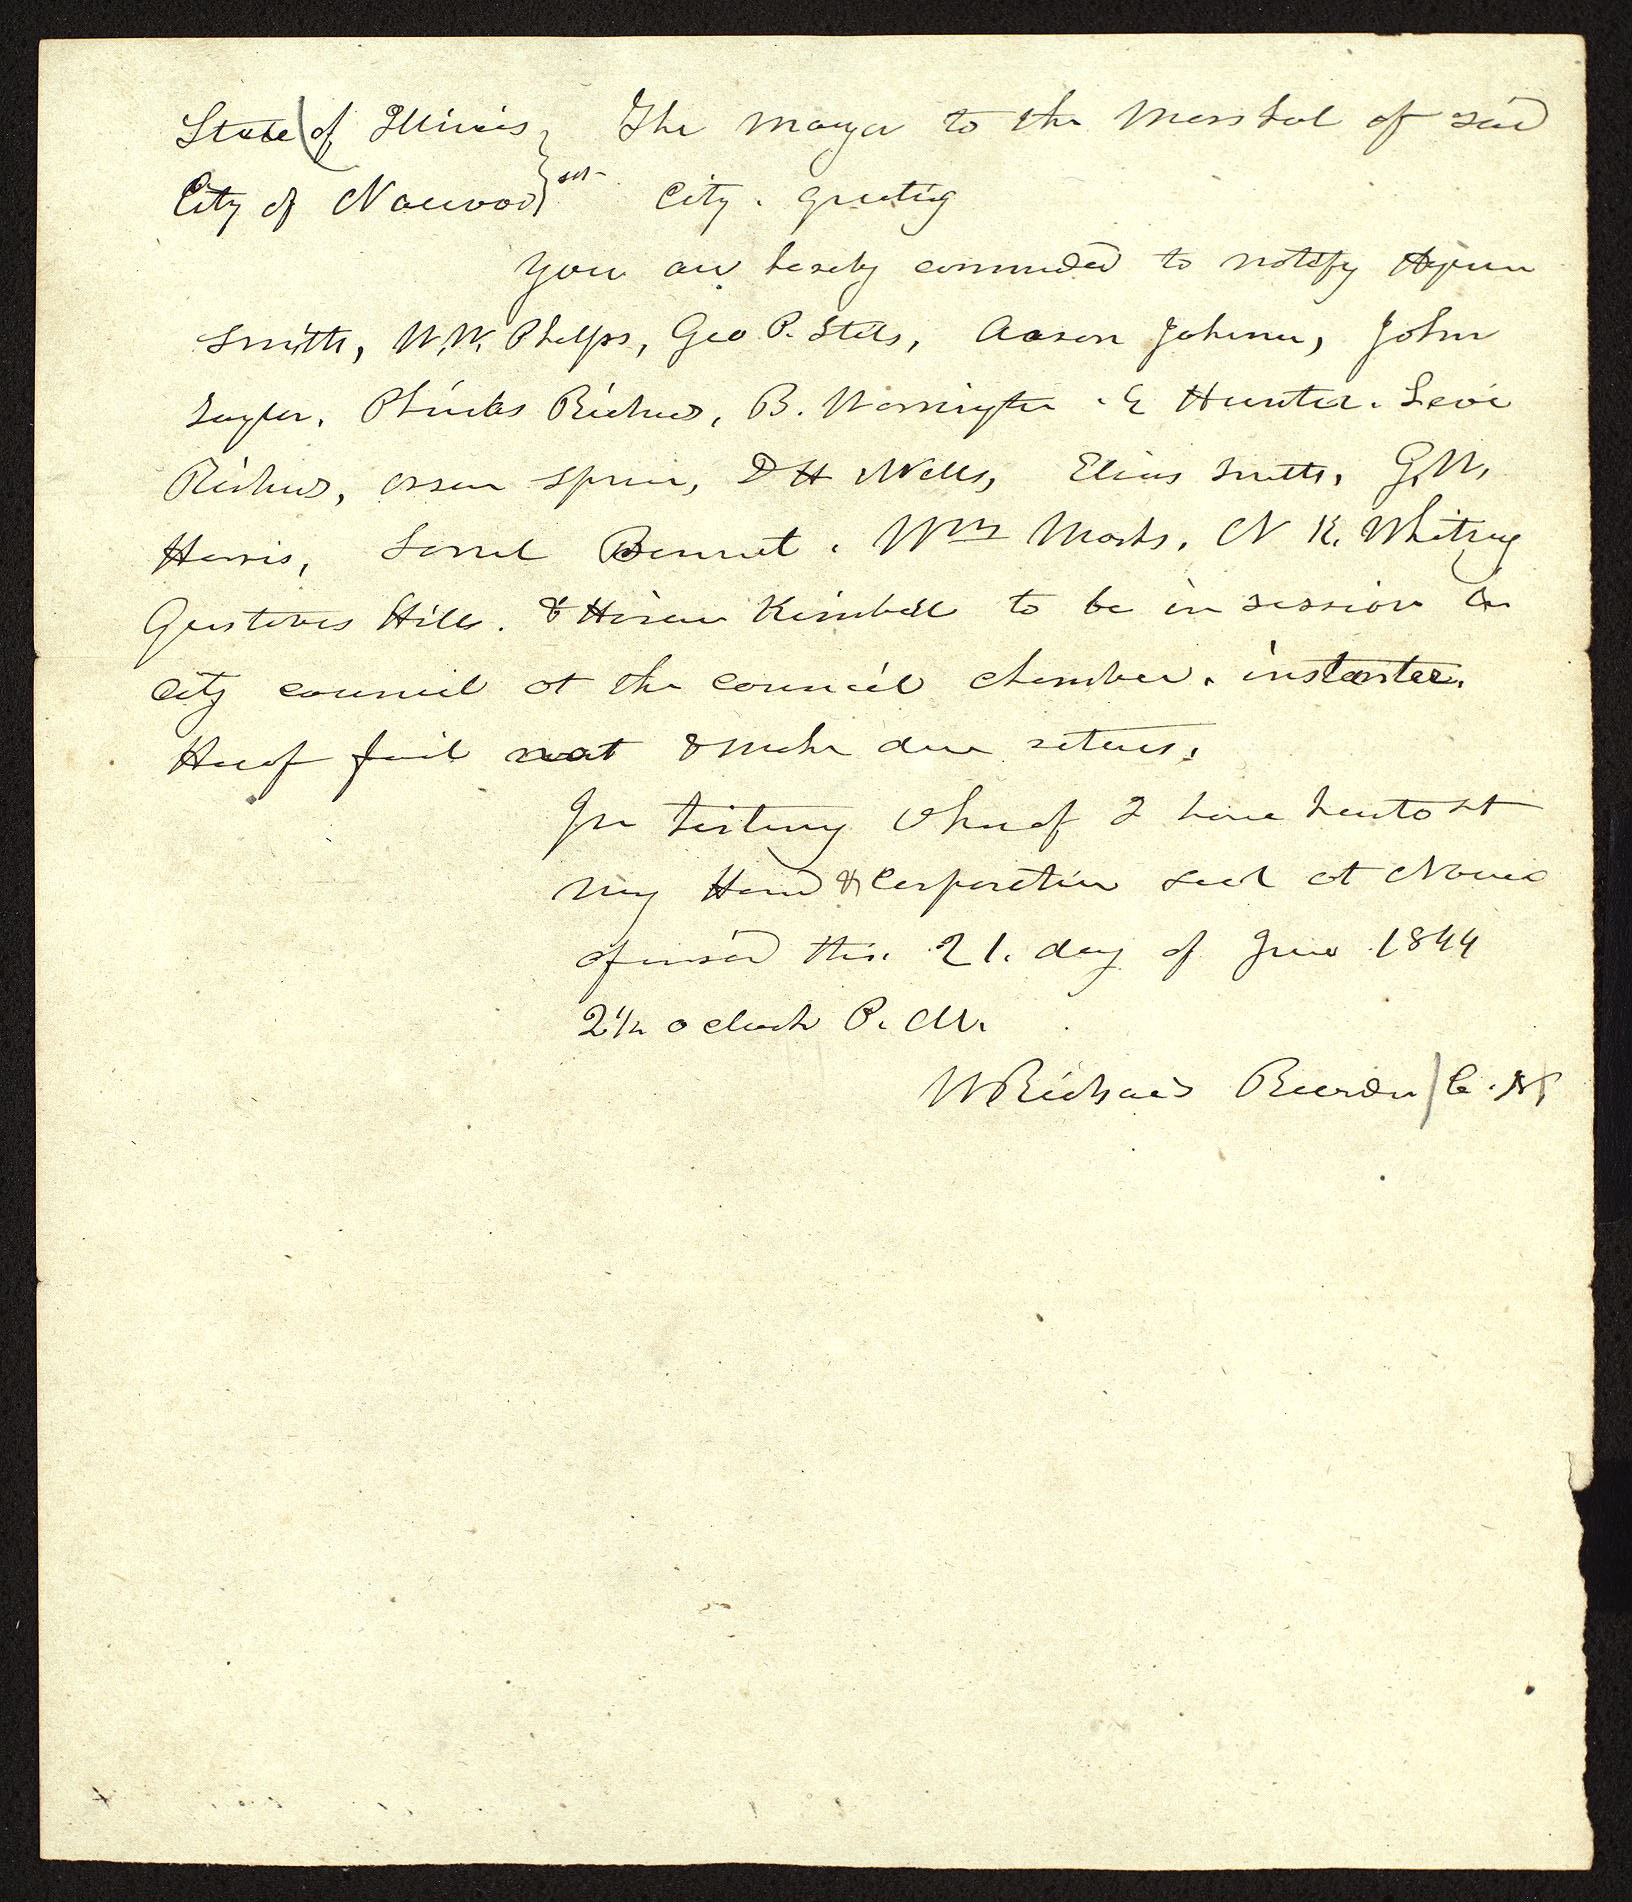 State of Illinois } The mayor to the Marshal of said
City of Nauvoo } sct City. greeting
You are hereby commanded to notify Hyrum
Smith, W. W. Phelps, Geo P. Stiles, Aaron Johnson, John
Taylor, Phinehas Richards, B. Warrington. E Hunter. Levi
Richards, Orson Spencer, D H Wells, Elias Smith, G. W.
Harris, Samuel Bennet. Wm Marks, N. K. Whitney
Gustavus Hills. & Hiram Kimball to be in session in
city council at the council chamber. instanter.
Hereof fail not & make due return.
In testimony whereof I have hereto set
my Hand & Corporation seal at Nauvoo
aforesaid this. 21. day of June 1844
2 1/2 o clock P. M.
W Richards Recorder C. N.